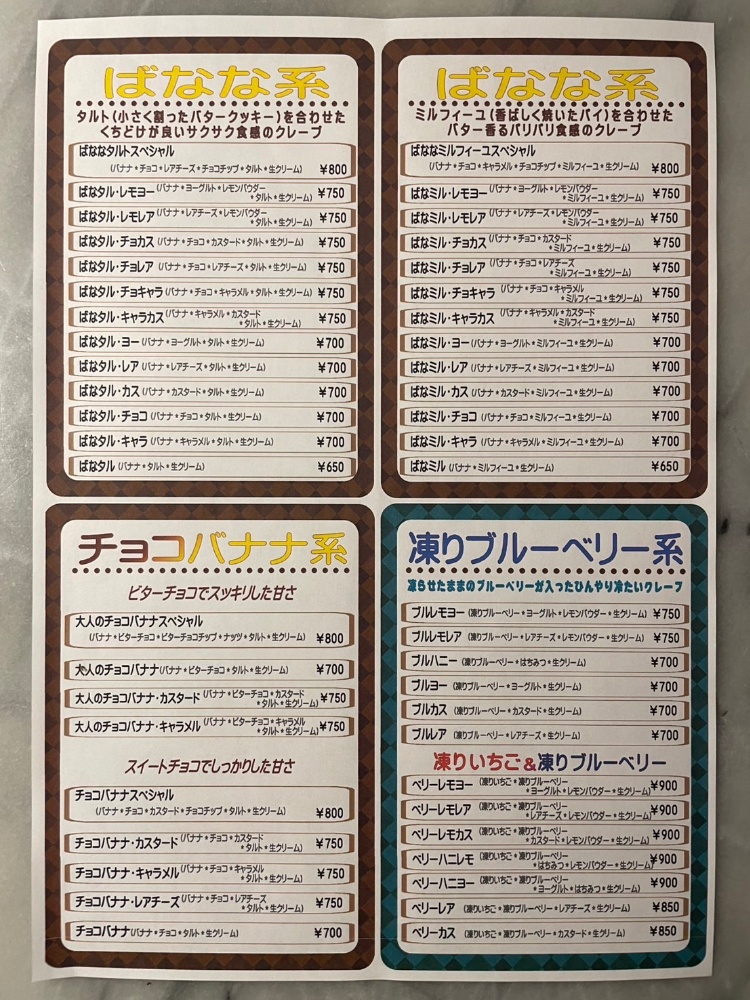 ばなな系
タルト(小さく割ったバタークッキー)を合わせた
くちどけが良いサクサク食感のクレープ
ばななタルトスペシャル
(バナナ*チョコ*レアチーズ*チョコチップ*タルト*生クリーム) ¥800
ばなタル・レモヨー(バナナ*ヨーグルト*レモンパウダー
*タルト*生クリーム) ¥750
ばなタル・レモレア(バナナ*レアチーズ*レモンパウダー
*タルト*生クリーム) ¥750
ばなタル・チョカス(バナナ*チョコ*カスタード*タルト*生クリーム) ¥750
ばなタル・チョレア(バナナ*チョコ*レアチーズ*タルト*生クリーム) ¥750
ばなタル・チョキャラ(バナナ*チョコ*キャラメル*タルト*生クリーム) ¥750
ばなタル・キャラカス(バナナ*キャラメル*カスタード
*タルト*生クリーム) ¥750
ばなタル・ヨー(バナナ*ヨーグルト*タルト*生クリーム) ¥700
ばなタル・レア(バナナ*レアチーズ*タルト*生クリーム) ¥700
ばなタル・カス(バナナ*カスタード*タルト*生クリーム) ¥700
ばなタル・チョコ(バナナ*チョコ*タルト*生クリーム) ¥700
ばなタル・キャラ(バナナ*キャラメル*タルト*生クリーム) ¥700
ばなタル(バナナ*タルト*生クリーム) ¥650
ばなな系
ミルフィーユ(香ばしく焼いたパイ)を合わせた
バター香るパリパリ食感のクレープ
ばななミルフィーユスペシャル
(バナナ*チョコ*キャラメル*チョコチップ*ミルフィーユ*生クリーム) ¥800
ばなミル・レモヨー(バナナ*ヨーグルト*レモンパウダー
*ミルフィーユ*生クリーム) ¥750
ばなミル・レモレア(バナナ*レアチーズ*レモンパウダー
*ミルフィーユ*生クリーム) ¥750
ばなミル・チョカス(バナナ*チョコ*カスタード
*ミルフィーユ*生クリーム) ¥750
ばなミル・チョレア(バナナ*チョコ*レアチーズ
*ミルフィーユ*生クリーム) ¥750
ばなミル・チョキャラ(バナナ*チョコ*キャラメル
*ミルフィーユ*生クリーム) ¥750
ばなミル・キャラカス(バナナ*キャラメル*カスタード
*ミルフィーユ*生クリーム) ¥750
ばなミル・ヨー(バナナ*ヨーグルト*ミルフィーユ*生クリーム) ¥700
ばなミル・レア(バナナ*レアチーズ*ミルフィーユ*生クリーム) ¥700
ばなミル・カス(バナナ*カスタード*ミルフィーユ*生クリーム) ¥700
ばなミル・チョコ(バナナ*チョコ*ミルフィーユ*生クリーム) ¥700
ばなミル・キャラ(バナナ*キャラメル*ミルフィーユ*生クリーム) ¥700
ばなミル(バナナ*ミルフィーユ*生クリーム) ¥650
チョコバナナ系
ビターチョコでスッキリした甘さ
大人のチョコバナナスペシャル
(バナナ*ビターチョコ*ビターチョコチップ*ナッツ*タルト*生クリーム) ¥800
大人のチョコバナナ(バナナ*ビターチョコ*タルト*生クリーム) ¥700
大人のチョコバナナ・カスタード(バナナ*ビターチョコ*カスタード
*タルト*生クリーム) ¥750
大人のチョコバナナ・キャラメル(バナナ*ビターチョコ*キャラメル
*タルト*生クリーム) ¥750
スイートチョコでしっかりした甘さ
チョコバナナスペシャル
(バナナ*チョコ*カスタード*チョコチップ*タルト*生クリーム) ¥800
チョコバナナ・カスタード(バナナ*チョコ*カスタード
*タルト*生クリーム) ¥750
チョコバナナ・キャラメル(バナナ*チョコ*キャラメル
*タルト*生クリーム) ¥750
チョコバナナ・レアチーズ(バナナ*チョコ*レアチーズ
*タルト*生クリーム) ¥750
チョコバナナ(バナナ*チョコ*タルト*生クリーム) ¥700
凍りブルーベリー系
凍らせたままのブルーベリーが入ったひんやり冷たいクレープ
ブルレモヨー(凍りブルーベリー*ヨーグルト*レモンパウダー*生クリーム) ¥750
ブルレモレア(凍りブルーベリー*レアチーズ*レモンパウダー*生クリーム) ¥750
ブルハニー(凍りブルーベリー*はちみつ*生クリーム) ¥700
ブルヨー(凍りブルーベリー*ヨーグルト*生クリーム) ¥700
ブルカス(凍りブルーベリー*カスタード*生クリーム) ¥700
ブルレア(凍りブルーベリー*レアチーズ*生クリーム) ¥700
凍りいちご&凍りブルーベリー
ベリーレモヨー(凍りいちご*凍りブルーベリー
*ヨーグルト*レモンパウダー*生クリーム) ¥900
ベリーレモレア(凍りいちご*凍りブルーベリー
*レアチーズ*レモンパウダー*生クリーム) ¥900
ベリーレモカス(凍りいちご*凍りブルーベリー
*カスタード*レモンパウダー*生クリーム) ¥900
ベリーハニレモ(凍りいちご*凍りブルーベリー
*はちみつ*レモンパウダー*生クリーム) ¥900
ベリーハニヨー(凍りいちご*凍りブルーベリー
*ヨーグルト*はちみつ*生クリーム) ¥900
ベリーレア(凍りいちご*凍りブルーベリー*レアチーズ*生クリーム) ¥850
ベリーカス(凍りいちご*凍りブルーベリー*カスタード*生クリーム) ¥850